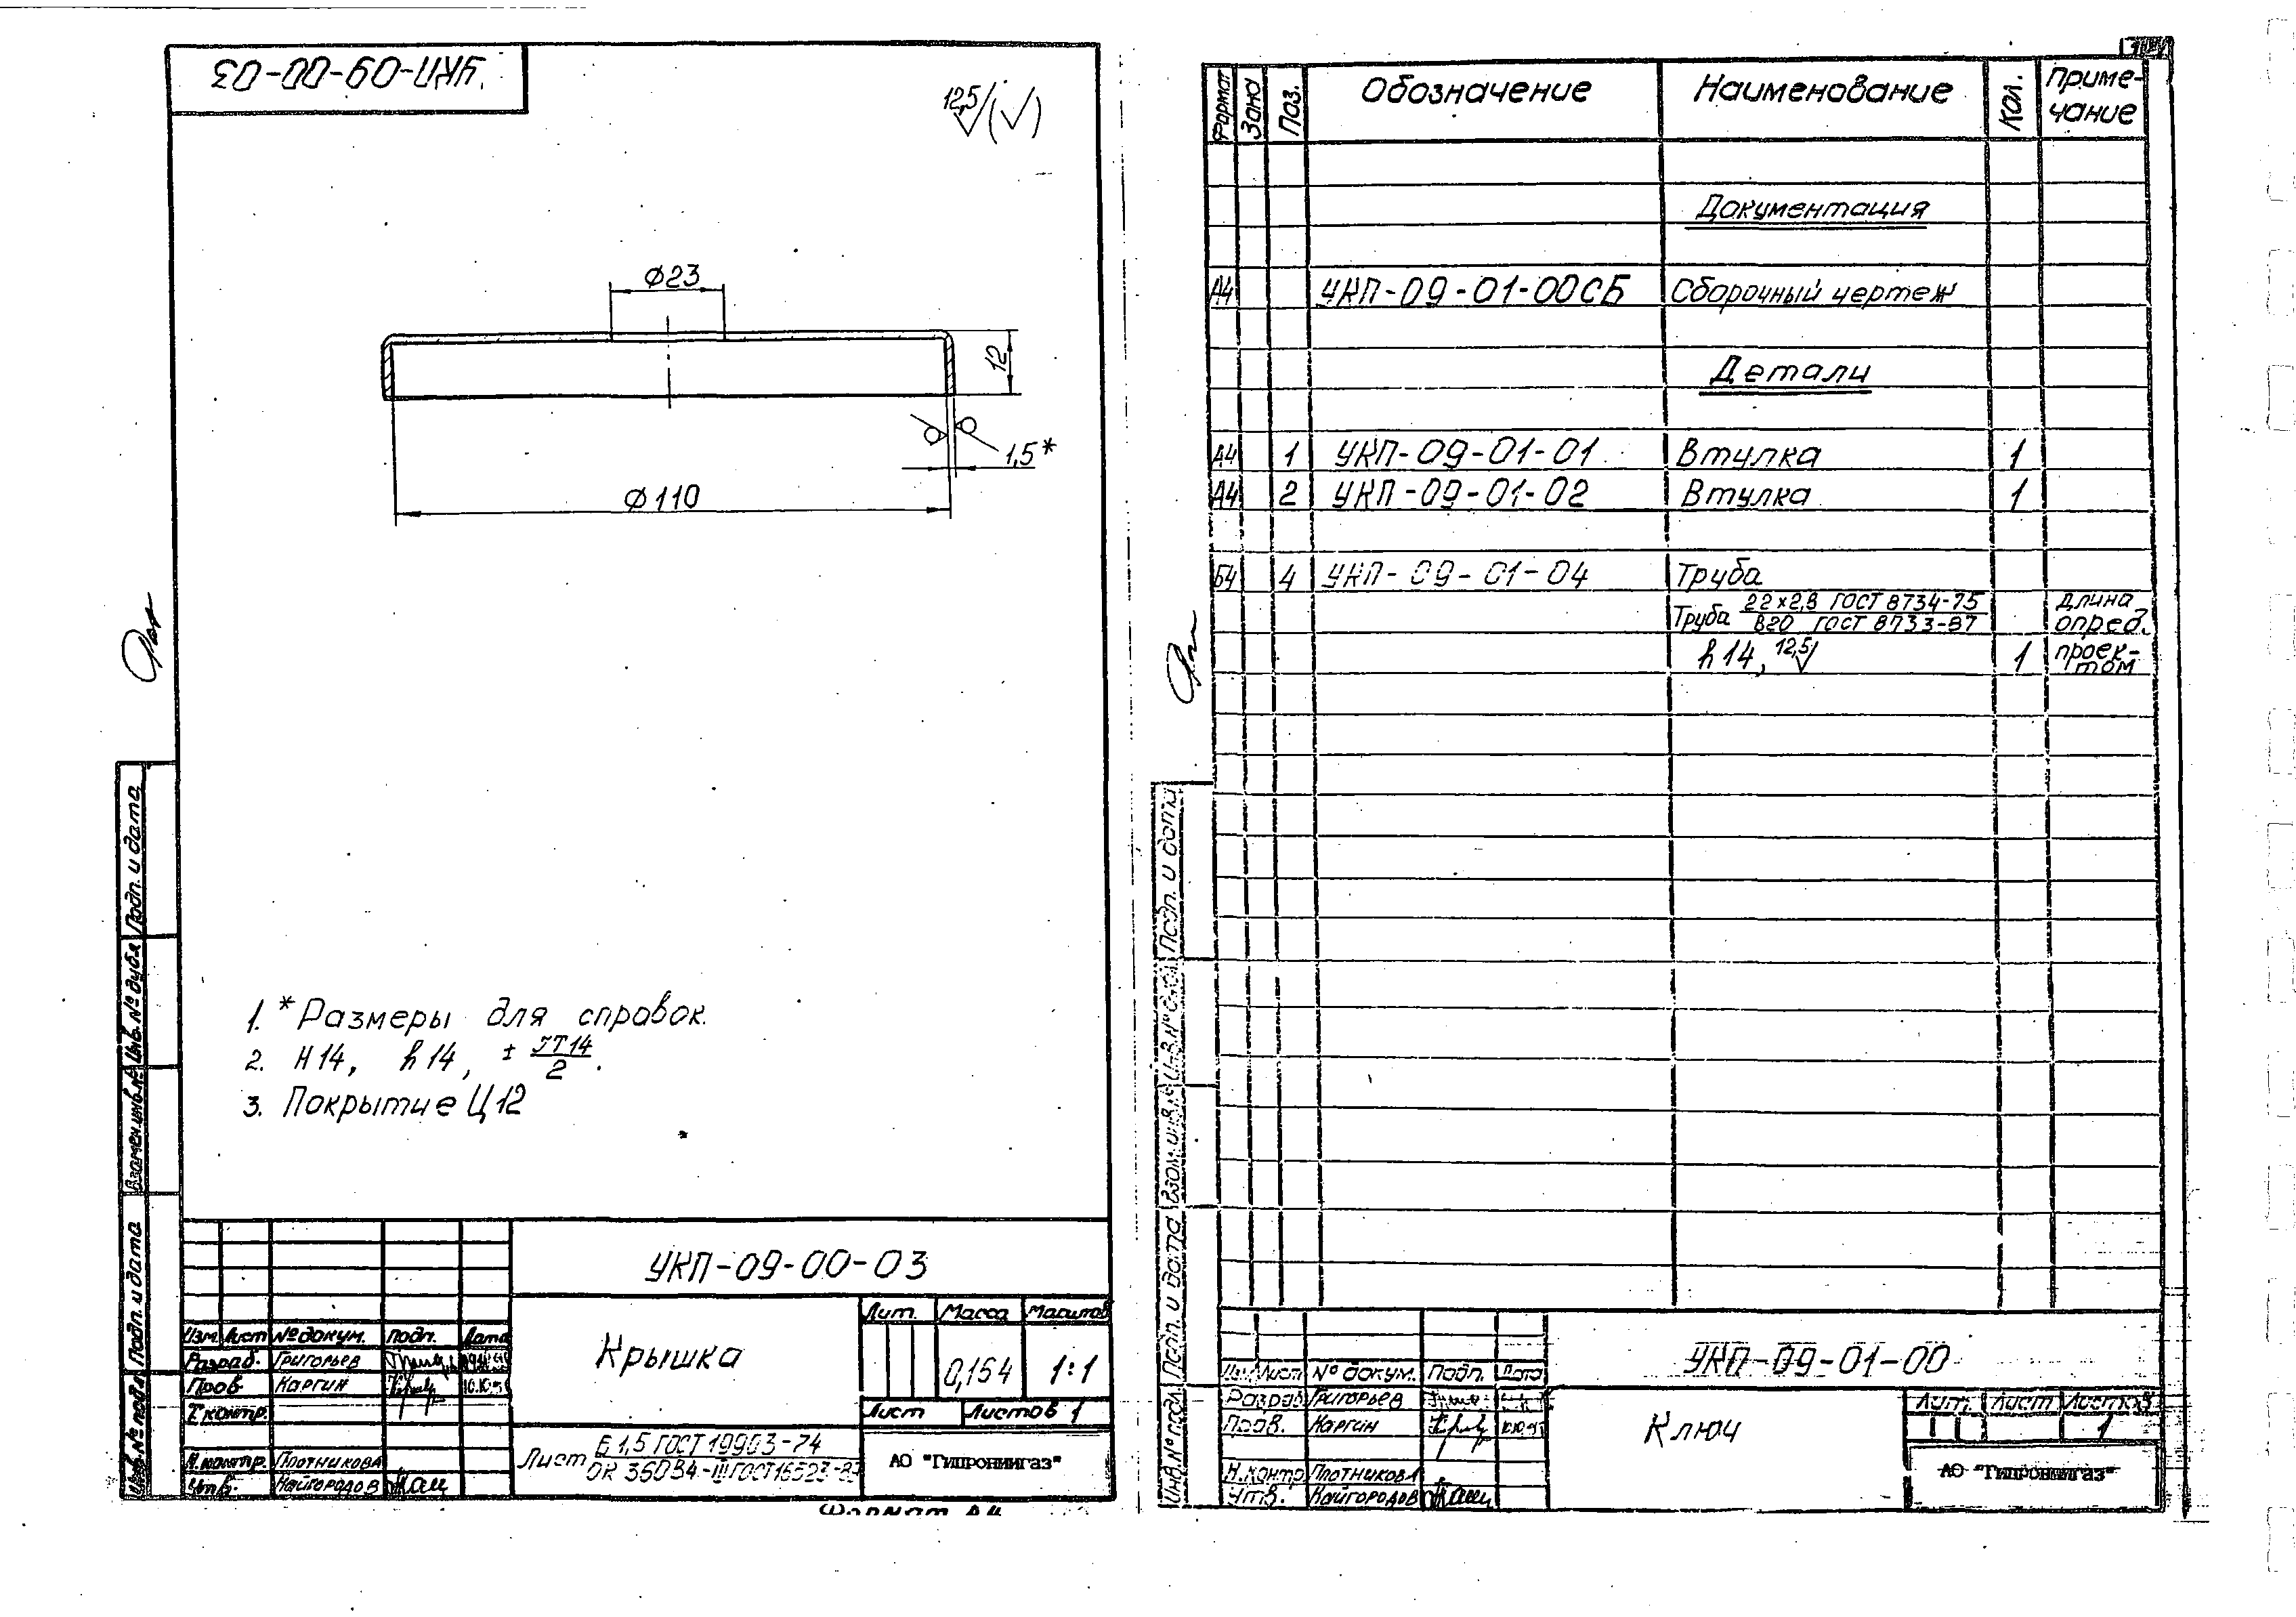 УКП-09-00-03
12,5 (√)
Ø23
12
1,5*
Ø110
1. *Размеры для справок.
2. H14, h14, ± IT14/2.
3. Покрытие Ц12
Подп. и дата
Инв. № дубл.
Взамен инв. №
Подп. и дата
Инв. № подл.
УКП-09-00-03
Изм. Лист № докум. Подп. Дата
Разраб. Григорьев
Пров. Каргин
Т. контр.
Н. контр. Плотникова
Утв. Кайгородов
Крышка
Лит. Масса Масштаб
0,154 1:1
Лист Листов 1
Лист Б 1,5 ГОСТ 19903-74
ОК 360В4-III ГОСТ 16523-
АО "Гипрониигаз"
Формат А4
Формат Зона Поз. Обозначение Наименование Кол. Приме-
чание
Документация
А4 УКП-09-01-00СБ Сборочный чертеж
Детали
А4 1 УКП-09-01-01 Втулка 1
А4 2 УКП-09-01-02 Втулка 1
Б4 4 УКП-09-01-04 Труба
Труба 22×2,8 ГОСТ 8734-75 длина
В20 ГОСТ 8733-87 опред.
h14, 12,5 1 проек-
том
Подп. и дата
Взам. инв. №
Подп. и дата
Инв. № подл.
УКП-09-01-00
Изм. Лист № докум. Подп. Дата
Разраб. Григорьев
Пров. Каргин
Н. контр. Плотникова
Утв. Кайгородов
Ключ
Лит. Лист Листов
1
АО "Гипрониигаз"